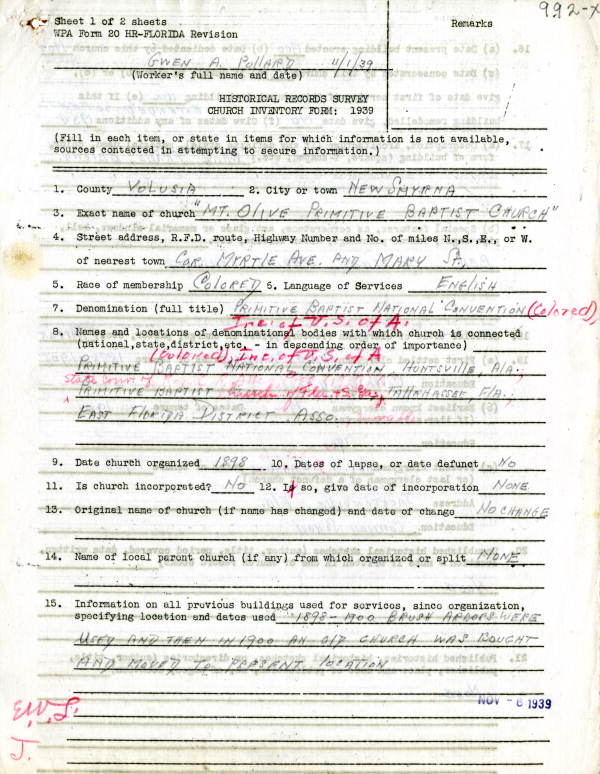 992-X
Sheet 1 of 2 sheets
Remarks
WPA Form 20 HR-FLORIDA Revision
GWEN A. POLLARD 11/1/39
(Worker's full name and date)
HISTORICAL RECORDS SURVEY
CHURCH INVENTORY FORM: 1939
(Fill in each item, or state in items for which information is not available,
sources contacted in attempting to secure information.)
1. County VOLUSIA 2. City or town NEW SMYRNA
3. Exact name of church "MT. OLIVE PRIMITIVE BAPTIST CHURCH"
4. Street address, R.F.D. route, Highway Number and No. of miles N.,S.,E., or W.
of nearest town COR. MYRTLE AVE. AND MARY ST.
5. Race of membership COLORED 6. Language of Services ENGLISH
7. Denomination (full title) PRIMITIVE BAPTIST NATIONAL CONVENTION (Colored),
Inc. of U. S. of A.
8. Names and locations of denominational bodies with which church is connected
(national,state,district,etc. - in descending order of importance)
(Colored), Inc. of U. S. of A
PRIMITIVE BAPTIST NATIONAL CONVENTION, HUNTSVILLE, ALA.;
State Conv. of
PRIMITIVE BAPTIST TALLAHASSEE, FLA.;
EAST FLORIDA DISTRICT ASSO.
9. Date church organized 1898 10. Dates of lapse, or date defunct NO
11. Is church incorporated? NO 12. If so, give date of incorporation NONE
13. Original name of church (if name has changed) and date of change NO CHANGE
14. Name of local parent church (if any) from which organized or split NONE
15. Information on all previous buildings used for services, since organization,
specifying location and dates used 1898-1900 BRUSH ARBORS WERE
USED AND THEN IN 1900 AN OLD CHURCH WAS BOUGHT
AND MOVED TO PRESENT LOCATION
NOV - 6 1939
E.W.L.
J.